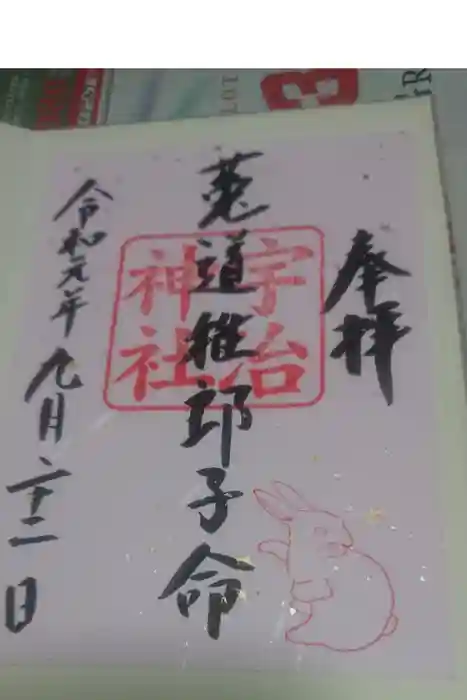 奉拝
宇治
神社
菟道稚郎子命
令和元年九月二十二日